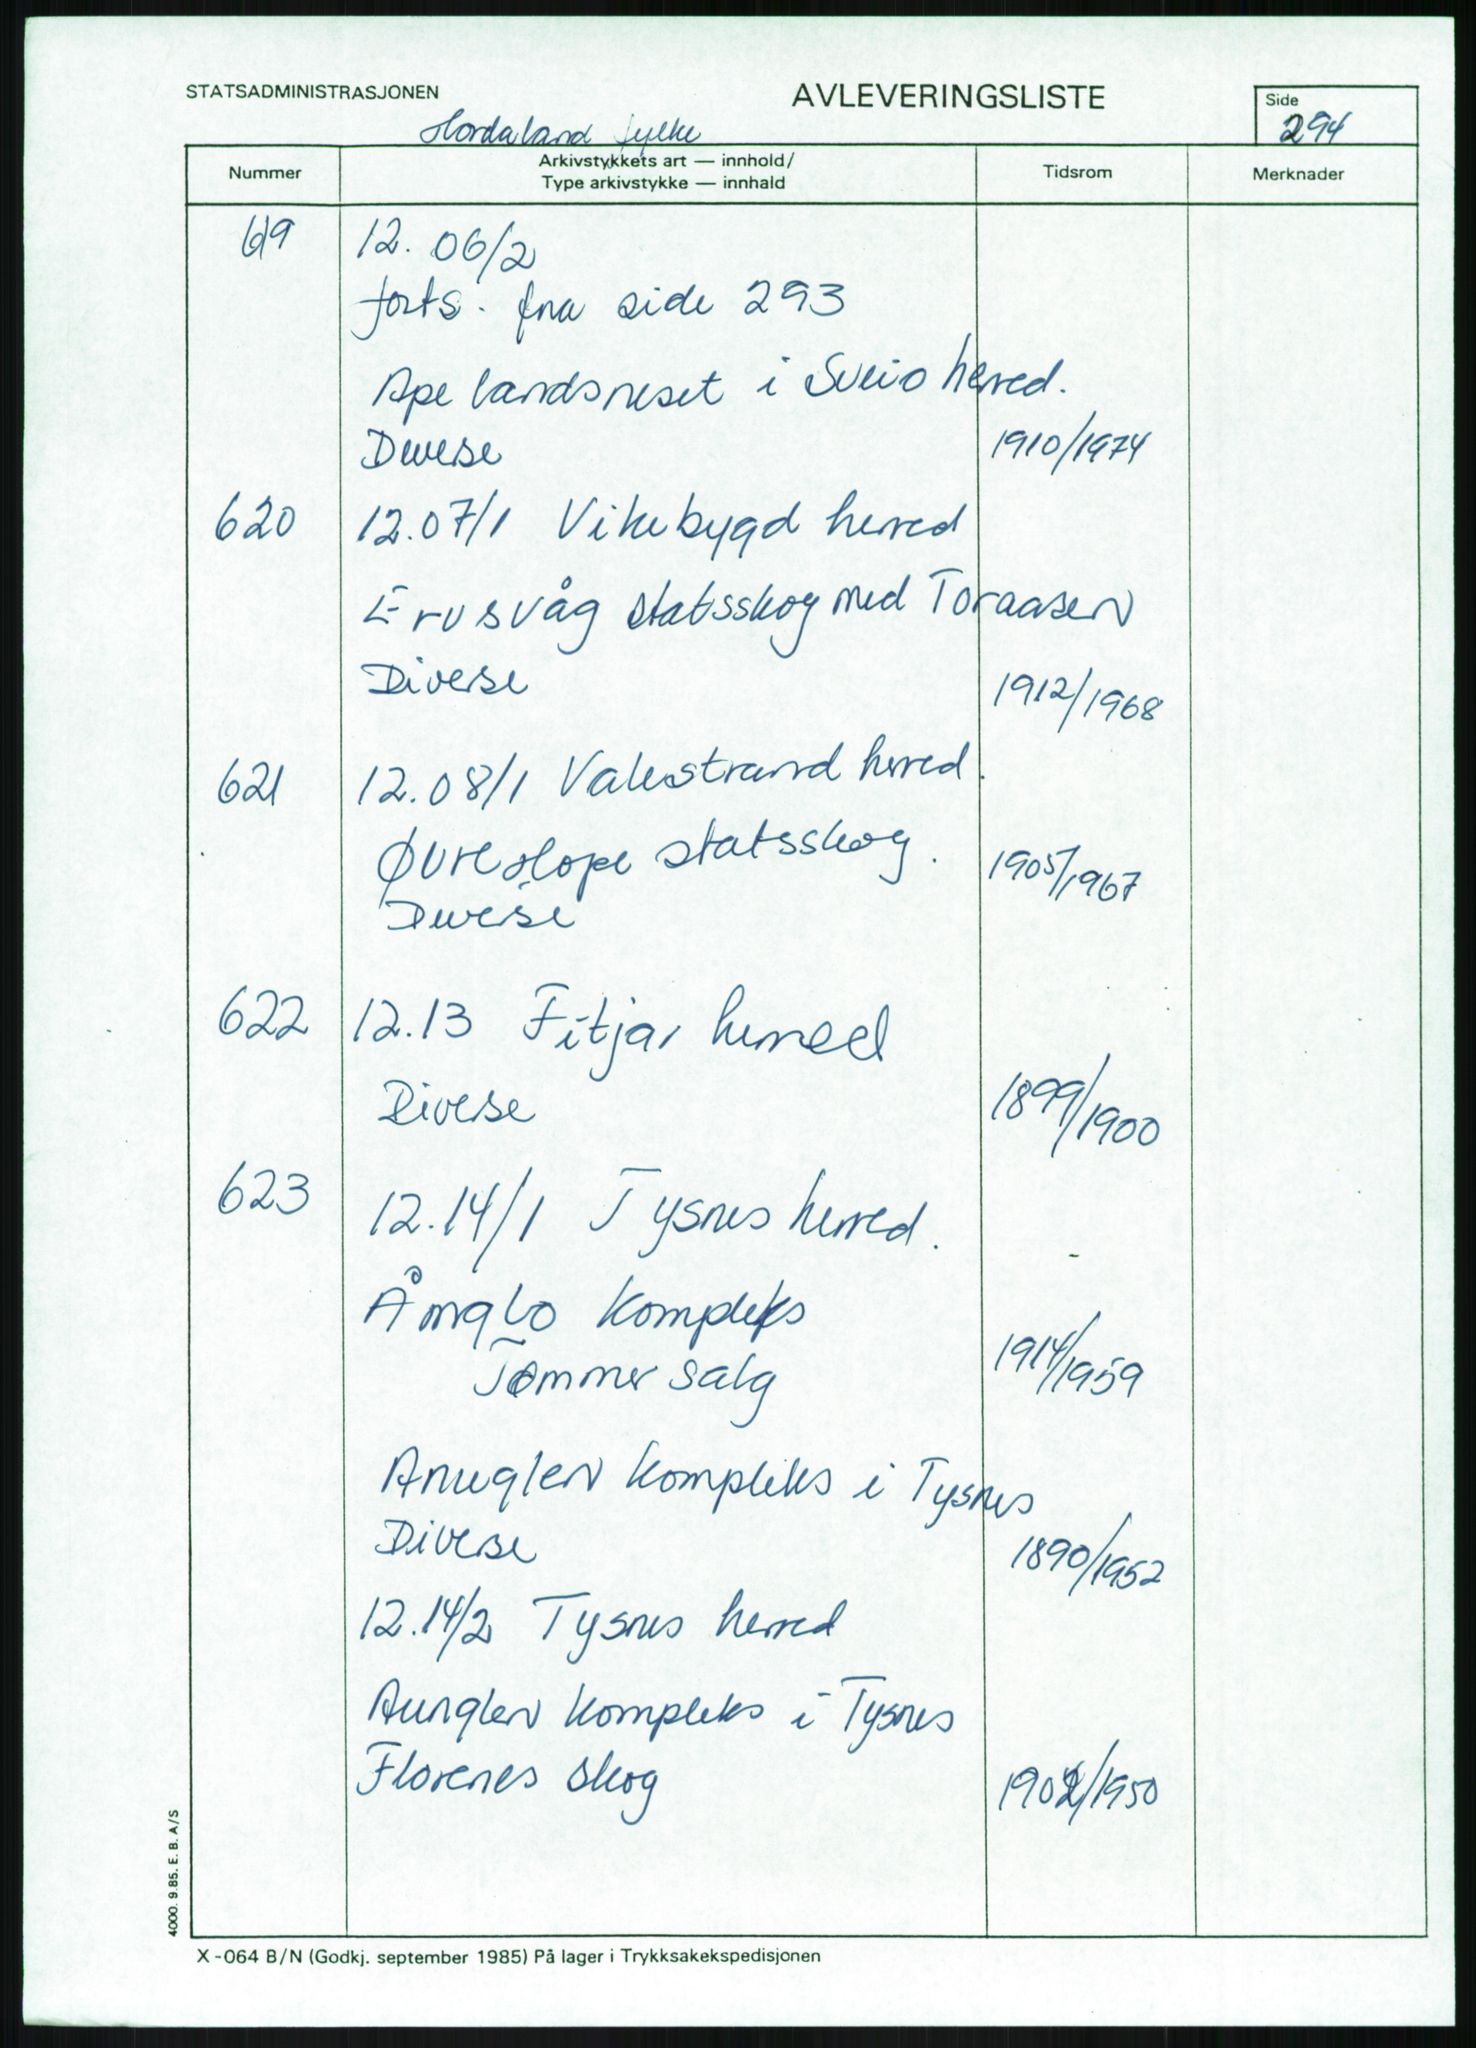 STATSADMINISTRASJONEN
AVLEVERINGSLISTE
Side
294
Hordaland fylke
Nummer
Arkivstykkets art — innhold/
Type arkivstykke — innhald
Tidsrom
Merknader
619 12. 06/2
forts. fra side 293
Apelandsneset i Sveio herred.
Diverse 1910/1974
620 12.07/1 Vikebygd herred
statsskog med Toraasen
Diverse 1912/1968
621 12.08/1 Valestrand herred.
Øvre Hope statsskog. 1905/1967
Diverse
622 12.13 Fitjar herred
Diverse 1899/1900
623 12.14/1 Tysnes herred.
Ånglo kompleks
Tømmersalg 1914/1959
Anuglen kompleks i Tysnes
Diverse 1890/1952
12.14/2 Tysnes herred
Anuglen kompleks i Tysnes
Florenes skog 1902/1950
4000. 9.85. E. B. A/S
X-064 B/N (Godkj. september 1985) På lager i Trykksakekspedisjonen